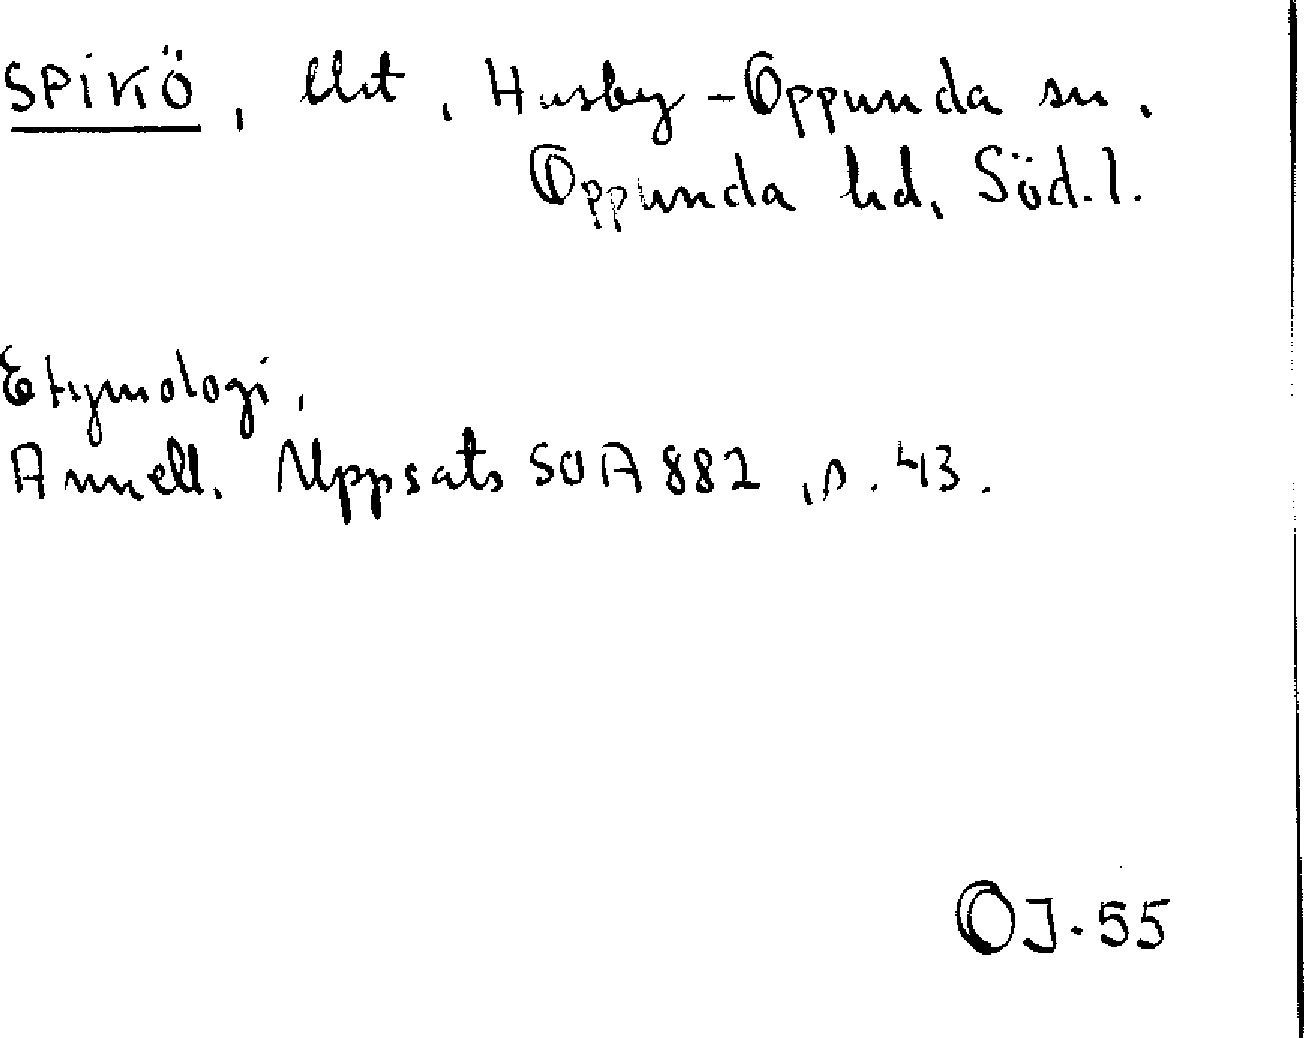 SPiKÖ, Ult, Husby-Oppunda sn.
Oppunda hd, Söd.l.
Etymologi,
Annell. Uppsats SOA 882, s. 43.
OJ-55